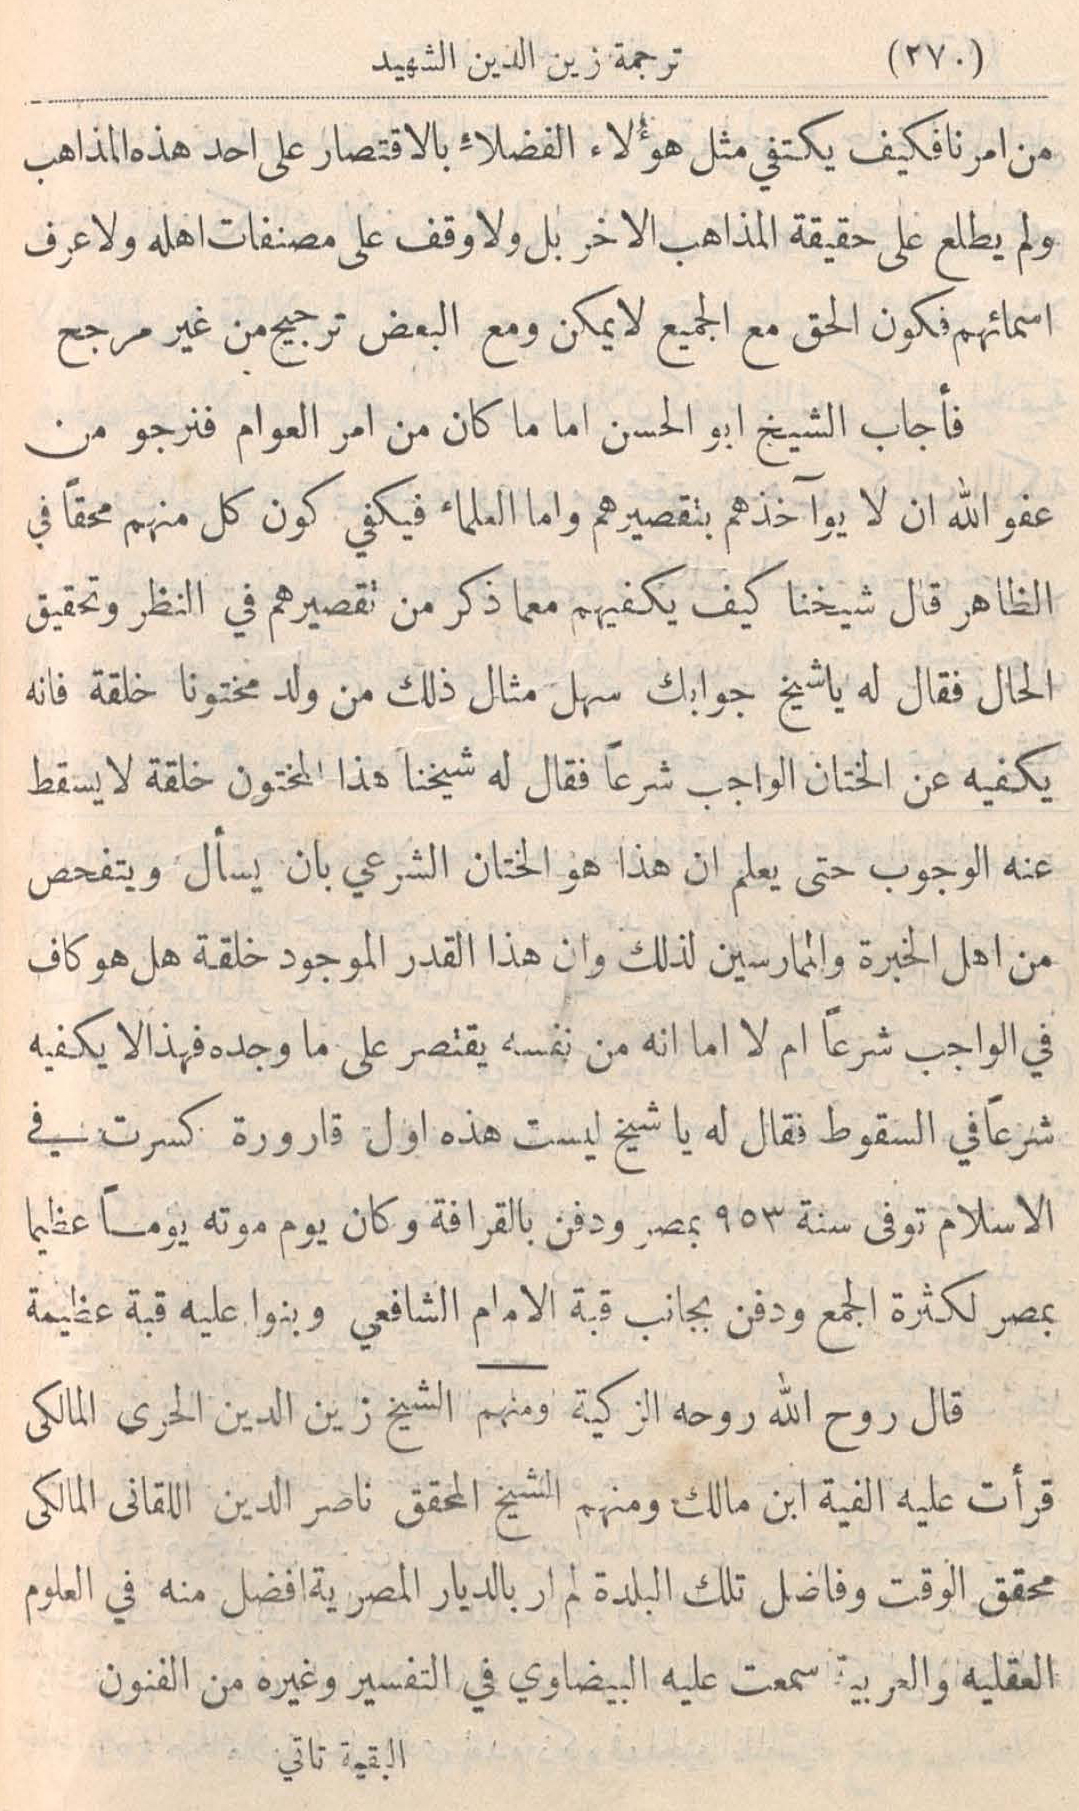 (٢٧٠) ترجمة زين الدين الشهيد
من امرنا فكيف يكتفي مثل هوٴلاء الفضلاء بالاقتصار على احد هذه المذاهب
ولم يطلع على حقيقة المذاهب الاخر بل ولا وقف على مصنفات اهله ولا عرف
اسمائهم فكون الحق مع الجميع لا يمكن ومع البعض ترجيح من غير مرجح
فأجاب الشيخ ابو الحسن اما ما كان من امر العوام فنرجو من
عفو الله ان لا يوآخذهم بتقصيرهم واما العلماء فيكفي كون كل منهم محقاً في
الظاهر قال شيخنا كيف يكفيهم معما ذكر من تقصيرهم في النظر وتحقيق
الحال فقال له ياشيخ جوابك سهل مثال ذلك من ولد مختونا خلقة فانه
يكفيه عن الختان الواجب شرعاً فقال له شيخنا هذا المختون خلقة لا يسقط
عنه الوجوب حتى يعلم ان هذا هو الختان الشرعي بان يسأل ويتفحص
من اهل الخبرة والمارسين لذلك وان هذا القدر الموجود خلقة هل هو كاف
في الواجب شرعاً ام لا اما انه من نفسه يقتصر على ما وجده فهذا لا يكفيه
شرعاً في السقوط فقال له يا شيخ ليست هذه اول قارورة كسرت في
الاسلام توفى سنة ٩٥٣ بمصر ودفن بالقرافة وكان يوم موته يوماً عظيما
بمصر لكثرة الجمع ودفن بجانب قبة الامام الشافعي وبنوا عليه قبة عظيمة
قال روح الله روحه الزكية ومنهم الشيخ زين الدين الحرى المالكى
قرأت عليه الفية ابن مالك ومنهم الشيخ المحقق ناصر الدين اللقانى المالكى
محقق الوقت وفاضل تلك البلدة لم ار بالديار المصرية افضل منه في العلوم
العقليه والعربية سمعت عليه البيضاوي في التفسير وغيره من الفنون
البقية تاتي